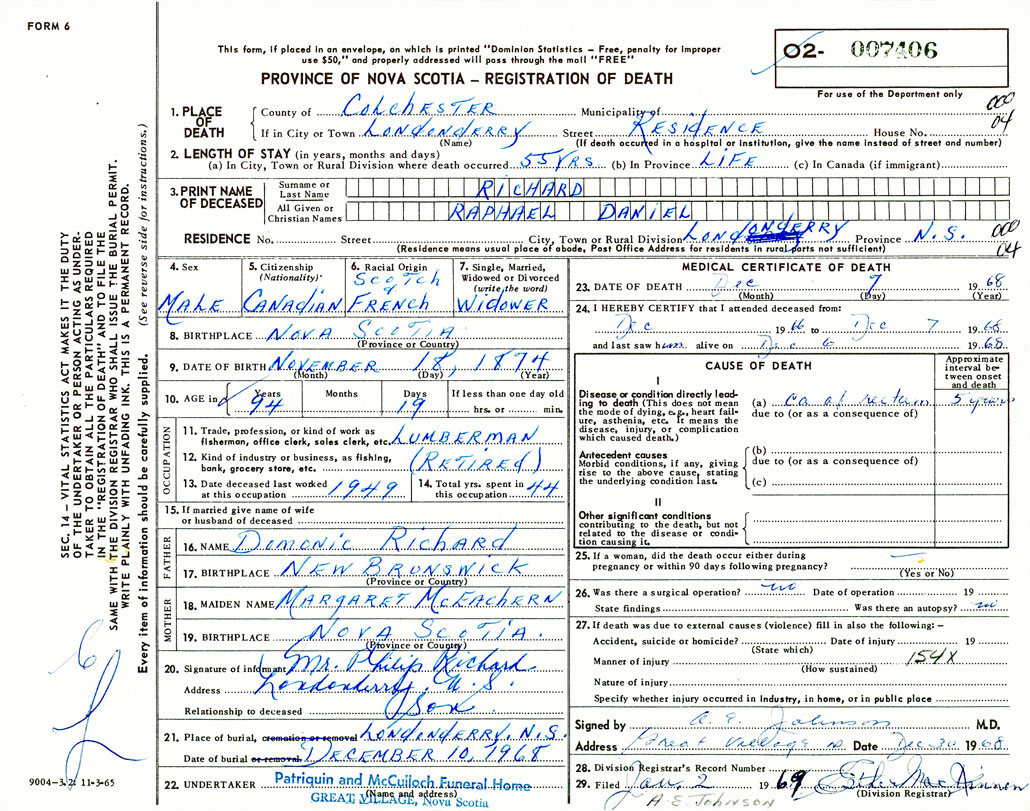 FORM 6
This form, if placed in an envelope, on which is printed "Dominion Statistics – Free, penalty for improper
use $50," and properly addressed will pass through the mail "FREE"
PROVINCE OF NOVA SCOTIA – REGISTRATION OF DEATH
02- 007406
For use of the Department only
000
04
1. PLACE OF DEATH
County of COLCHESTER Municipality of
If in City or Town LONDONDERRY Street RESIDENCE House No.
(Name) (If death occurred in a hospital or institution, give the name instead of street and number)
2. LENGTH OF STAY (in years, months and days)
(a) In City, Town or Rural Division where death occurred 55 YRS (b) In Province LIFE (c) In Canada (if immigrant)
3. PRINT NAME OF DECEASED
Surname or Last Name RICHARD
All Given or Christian Names RAPHAEL DANIEL
RESIDENCE No. Street City, Town or Rural Division LONDONDERRY Province N.S.
(Residence means usual place of abode, Post Office Address for residents in rural parts not sufficient)
000
04
4. Sex
MALE
5. Citizenship (Nationality)
CANADIAN
6. Racial Origin
SCOTCH & FRENCH
7. Single, Married, Widowed or Divorced (write the word)
WIDOWER
8. BIRTHPLACE NOVA SCOTIA
(Province or Country)
9. DATE OF BIRTH NOVEMBER 18, 1874
(Month) (Day) (Year)
10. AGE in Years Months Days If less than one day old
94 19 hrs. or min.
OCCUPATION
11. Trade, profession, or kind of work as
fisherman, office clerk, sales clerk, etc. LUMBERMAN
12. Kind of industry or business, as fishing,
bank, grocery store, etc. (RETIRED)
13. Date deceased last worked
at this occupation 1949
14. Total yrs. spent in
this occupation 44
15. If married give name of wife
or husband of deceased
FATHER
16. NAME DOMONIC RICHARD
17. BIRTHPLACE NEW BRUNSWICK
(Province or Country)
MOTHER
18. MAIDEN NAME MARGARET McEACHERN
19. BIRTHPLACE NOVA SCOTIA.
(Province or Country)
20. Signature of informant Mr. Philip Richard
Address Londonderry, N.S.
Relationship to deceased Son
21. Place of burial, cremation or removal LONDONDERRY, N.S.
Date of burial or removal DECEMBER 10, 1968
22. UNDERTAKER Patriquin and McCulloch Funeral Home
(Name and address)
GREAT VILLAGE, Nova Scotia
MEDICAL CERTIFICATE OF DEATH
23. DATE OF DEATH Dec 7 1968
(Month) (Day) (Year)
24. I HEREBY CERTIFY that I attended deceased from:
Dec 1966 to Dec 7 1968
and last saw him alive on Dec 6 1968
CAUSE OF DEATH
Approximate interval between onset and death
I
Disease or condition directly leading to death (This does not mean
the mode of dying, e.g., heart failure, asthenia, etc. It means the
disease, injury, or complication
which caused death.)
(a) Ca of rectum 5 years
due to (or as a consequence of)
Antecedent causes
Morbid conditions, if any, giving
rise to the above cause, stating
the underlying condition last.
(b)
due to (or as a consequence of)
(c)
II
Other significant conditions
contributing to the death, but not
related to the disease or condition causing it.
25. If a woman, did the death occur either during
pregnancy or within 90 days following pregnancy?
(Yes or No)
26. Was there a surgical operation? no Date of operation 19
State findings Was there an autopsy? no
27. If death was due to external causes (violence) fill in also the following: –
Accident, suicide or homicide? Date of injury 19
(State which)
Manner of injury 154X
(How sustained)
Nature of injury
Specify whether injury occurred in Industry, in home, or in public place
Signed by A. E. Johnson M.D.
Address Great Village Date Dec 30 1968
28. Division Registrar's Record Number
29. Filed Jan. 2 1969
(Division Registrar)
A. E. JOHNSON
SEC. 14 – VITAL STATISTICS ACT MAKES IT THE DUTY
OF THE UNDERTAKER OR PERSON ACTING AS UNDERTAKER TO OBTAIN ALL THE PARTICULARS REQUIRED
IN THE "REGISTRATION OF DEATH" AND TO FILE THE
SAME WITH THE DIVISION REGISTRAR WHO SHALL ISSUE THE BURIAL PERMIT.
WRITE PLAINLY WITH UNFADING INK. THIS IS A PERMANENT RECORD.
Every item of information should be carefully supplied. (See reverse side for instructions.)
9004-3, 2: 11-3-65